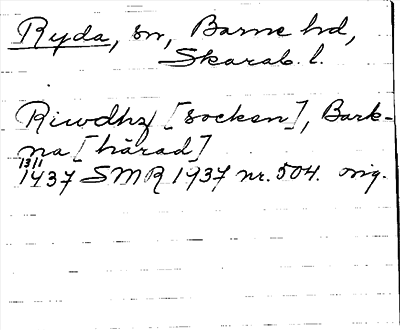 Ryda, sn, Barne hd,
Skarab. l.
Riwdhz [socken], Bark-
na [härad]
13/11
1437 SMR 1937 nr. 504. orig.